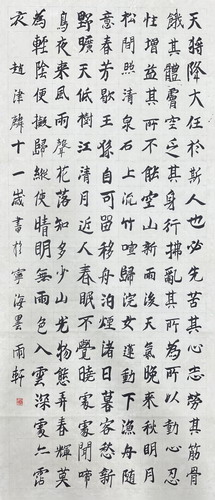 天將降大任於斯人也必先苦其心志勞其筋骨
餓其體膚空乏其身行拂亂其所為所以動心忍
性增益其所不能空山新雨後天氣晚來秋明月
松間照清泉石上流竹喧歸浣女蓮動下漁舟隨
意春芳歇王孫自可留移舟泊煙渚日暮客愁新
野曠天低樹江清月近人春眠不覺曉處處聞啼
鳥夜來風雨聲花落知多少山光物態弄春輝莫
為輕陰便擬歸縱使晴明無雨色入雲深處亦霑
衣 趙津麟十一歲書於寧海墨雨軒